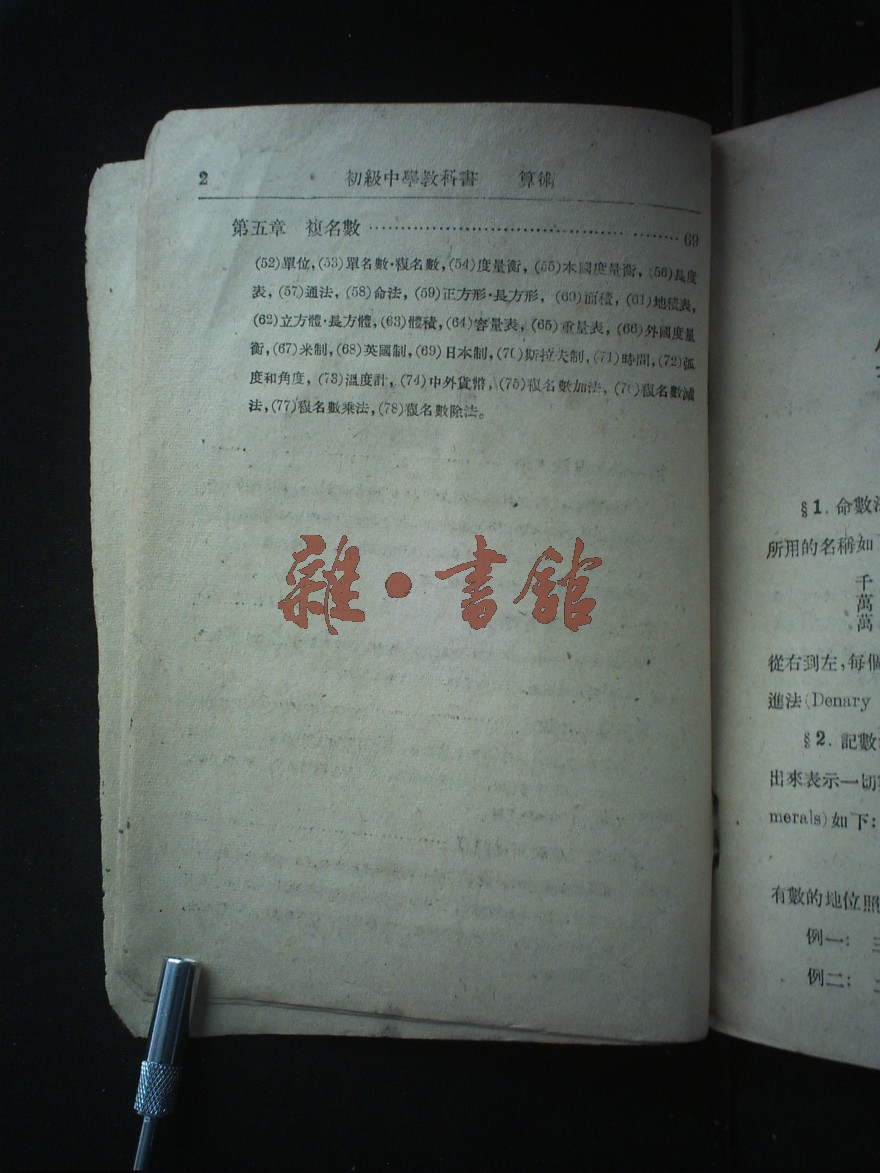 2 初級中學教科書 算術
第五章 複名數 ………………………………………… 69
(52)單位,(53)單名數·複名數,(54)度量衡,(55)本國度量衡,(56)長度
表,(57)通法,(58)命法,(59)正方形·長方形,(60)面積,(61)地積表,
(62)立方體·長方體,(63)體積,(64)容量表,(65)重量表,(66)外國度量
衡,(67)米制,(68)英國制,(69)日本制,(70)斯拉夫制,(71)時間,(72)弧
度和角度,(73)溫度計,(74)中外貨幣,(75)複名數加法,(76)複名數減
法,(77)複名數乘法,(78)複名數除法。
雜·書館
§1. 命數法
所用的名稱如
千
萬
萬
從右到左,每個
進法(Denary
§2. 記數
出來表示一切
merals)如下:
有數的地位照
例一: 三
例二: